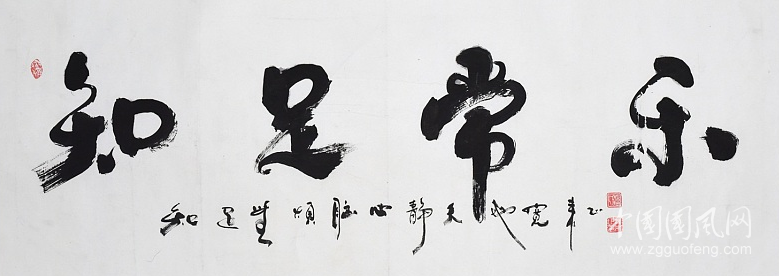 知足常乐
知足無煩脑心静天地宽
中国国风网
www.zgguofeng.com